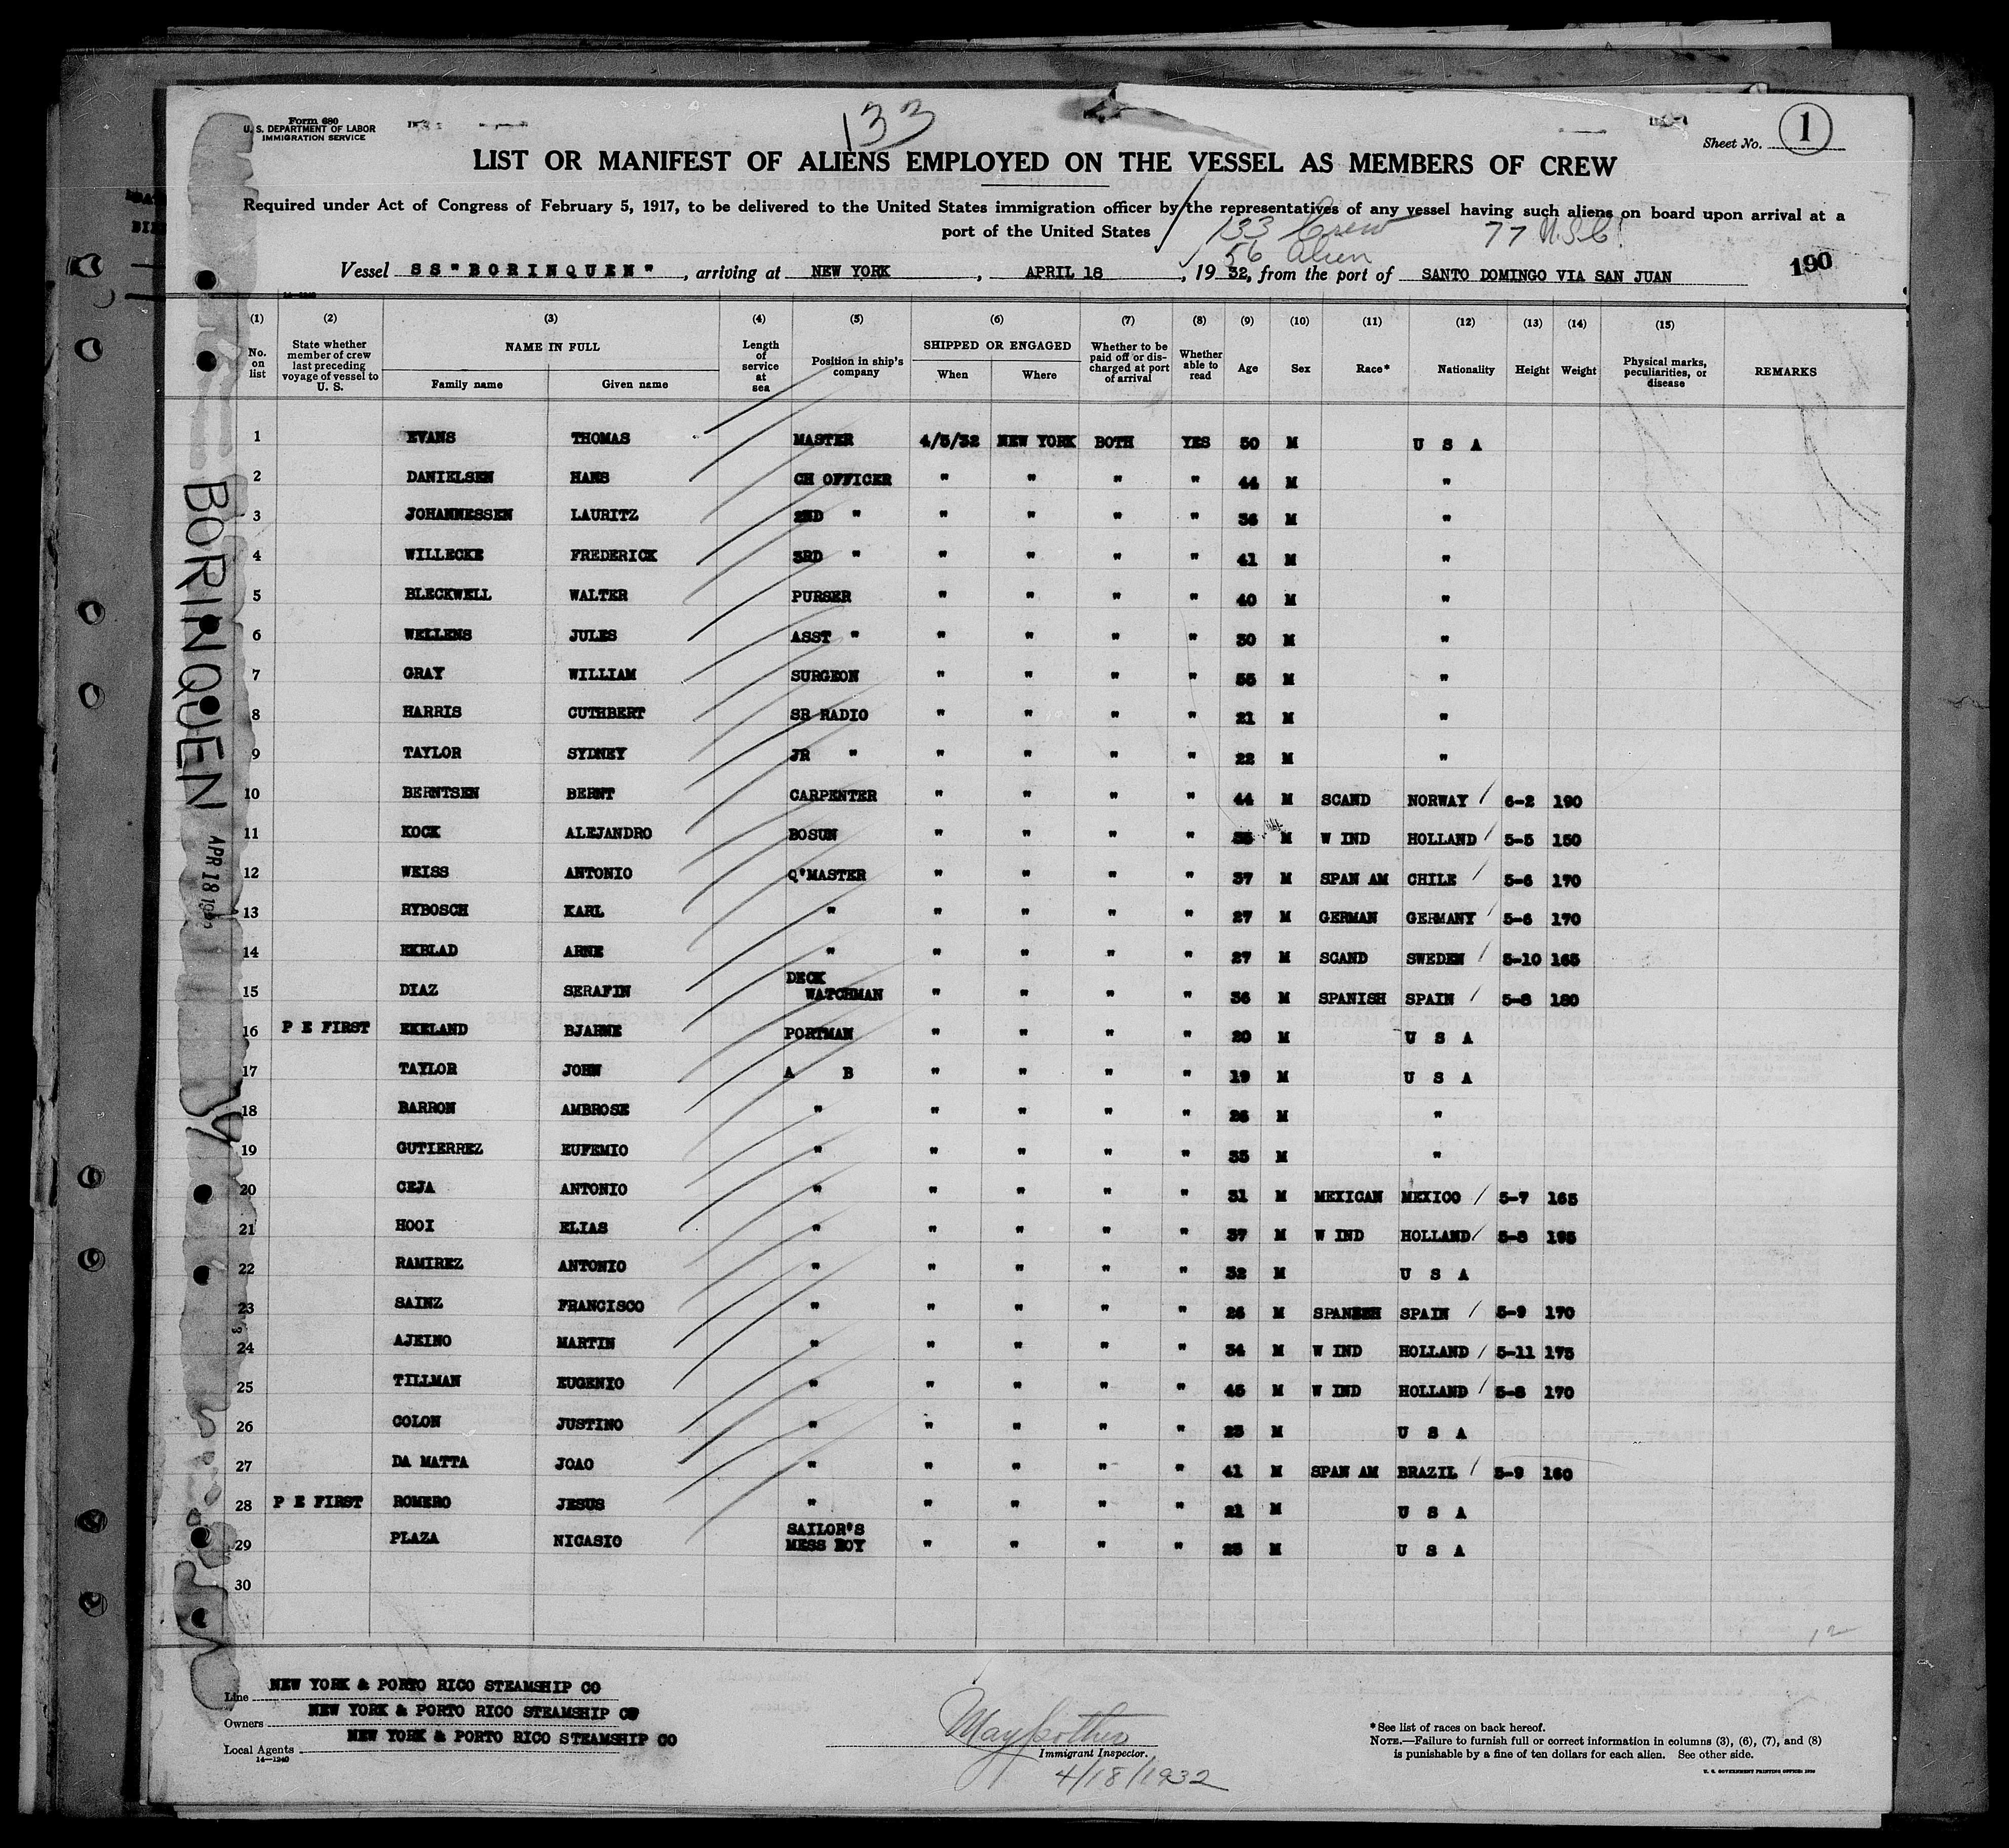 133
Form 680
U. S. DEPARTMENT OF LABOR
IMMIGRATION SERVICE
Sheet No. 1
LIST OR MANIFEST OF ALIENS EMPLOYED ON THE VESSEL AS MEMBERS OF CREW
Required under Act of Congress of February 5, 1917, to be delivered to the United States immigration officer by the representatives of any vessel having such aliens on board upon arrival at a
port of the United States
133 Crew 77 U.S.C.
56 Alien
Vessel SS "BORINQUEN", arriving at NEW YORK, APRIL 18, 1932, from the port of SANTO DOMINGO VIA SAN JUAN
190
14—1240
(1) (2) (3) (4) (5) (6) (7) (8) (9) (10) (11) (12) (13) (14) (15)
No. on list | State whether member of crew last preceding voyage of vessel to U. S. | NAME IN FULL Family name Given name | Length of service at sea | Position in ship's company | SHIPPED OR ENGAGED When Where | Whether to be paid off or discharged at port of arrival | Whether able to read | Age | Sex | Race* | Nationality | Height | Weight | Physical marks, peculiarities, or disease | REMARKS
1 EVANS THOMAS MASTER 4/5/32 NEW YORK BOTH YES 50 M U S A
2 DANIELSEN HANS CH OFFICER " " " " 44 M "
3 JOHANNESSEN LAURITZ 2ND " " " " " 36 M "
4 WILLECKE FREDERICK 3RD " " " " " 41 M "
5 BLECKWELL WALTER PURSER " " " " 40 M "
6 WELLENS JULES ASST " " " " " 30 M "
7 GRAY WILLIAM SURGEON " " " " 55 M "
8 HARRIS CUTHBERT SR RADIO " " " " 21 M "
9 TAYLOR SYDNEY JR " " " " " 22 M "
10 BERNTSEN BERNT CARPENTER " " " " 44 M SCAND NORWAY 6-2 190
11 KOCK ALEJANDRO BOSUN " " " " M W IND HOLLAND 5-5 150
12 WEISS ANTONIO Q'MASTER " " " " 37 M SPAN AM CHILE 5-6 170
13 RYBOSCH KARL " " " " " 27 M GERMAN GERMANY 5-6 170
14 EKBLAD ARNE " " " " " 27 M SCAND SWEDEN 5-10 165
15 DIAZ SERAFIN DECK WATCHMAN " " " " 36 M SPANISH SPAIN 5-8 180
16 P E FIRST EKELAND BJARNE PORTMAN " " " " 20 M U S A
17 TAYLOR JOHN A B " " " " 19 M U S A
18 BARRON AMBROSE " " " " " 26 M "
19 GUTIERREZ EUFEMIO " " " " " 35 M "
20 CEJA ANTONIO " " " " " 31 M MEXICAN MEXICO 5-7 165
21 HOOI ELIAS " " " " " 37 M W IND HOLLAND 5-8 195
22 RAMIREZ ANTONIO " " " " " 32 M U S A
23 SAINZ FRANCISCO " " " " " 26 M SPANISH SPAIN 5-9 170
24 AJEINO MARTIN " " " " " 34 M W IND HOLLAND 5-11 175
25 TILLMAN EUGENIO " " " " " 45 M W IND HOLLAND 5-8 170
26 COLON JUSTINO " " " " " 25 M U S A
27 DA MATTA JOAO " " " " " 41 M SPAN AM BRAZIL 5-9 160
28 P E FIRST ROMERO JESUS " " " " " 21 M U S A
29 PLAZA NICASIO SAILOR'S MESS BOY " " " " 25 M U S A
30
12
BORINQUEN
APR 18
Line NEW YORK & PORTO RICO STEAMSHIP CO
Owners NEW YORK & PORTO RICO STEAMSHIP CO
Local Agents NEW YORK & PORTO RICO STEAMSHIP CO
14—1240
Immigrant Inspector.
4/18/1932
*See list of races on back hereof.
NOTE.—Failure to furnish full or correct information in columns (3), (6), (7), and (8)
is punishable by a fine of ten dollars for each alien. See other side.
U. S. GOVERNMENT PRINTING OFFICE: 1930